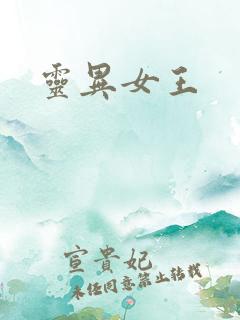 靈異女王
宣貴妃
未經同意禁止轉載